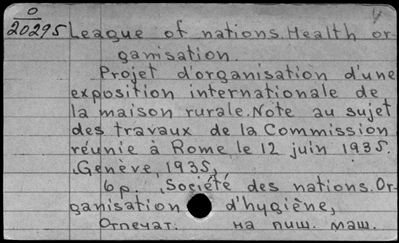 0
20295
League of nations. Health or-
ganisation.
Projet d'organisation d'une
exposition internationale de
la maison rurale. Note au sujet
des travaux de la Commission
réunie à Rome le 12 juin 1935.
Genève, 1935,
6p. Société des nations. Or-
ganisation d'hygiène,
Отпечат. на пиш. маш.